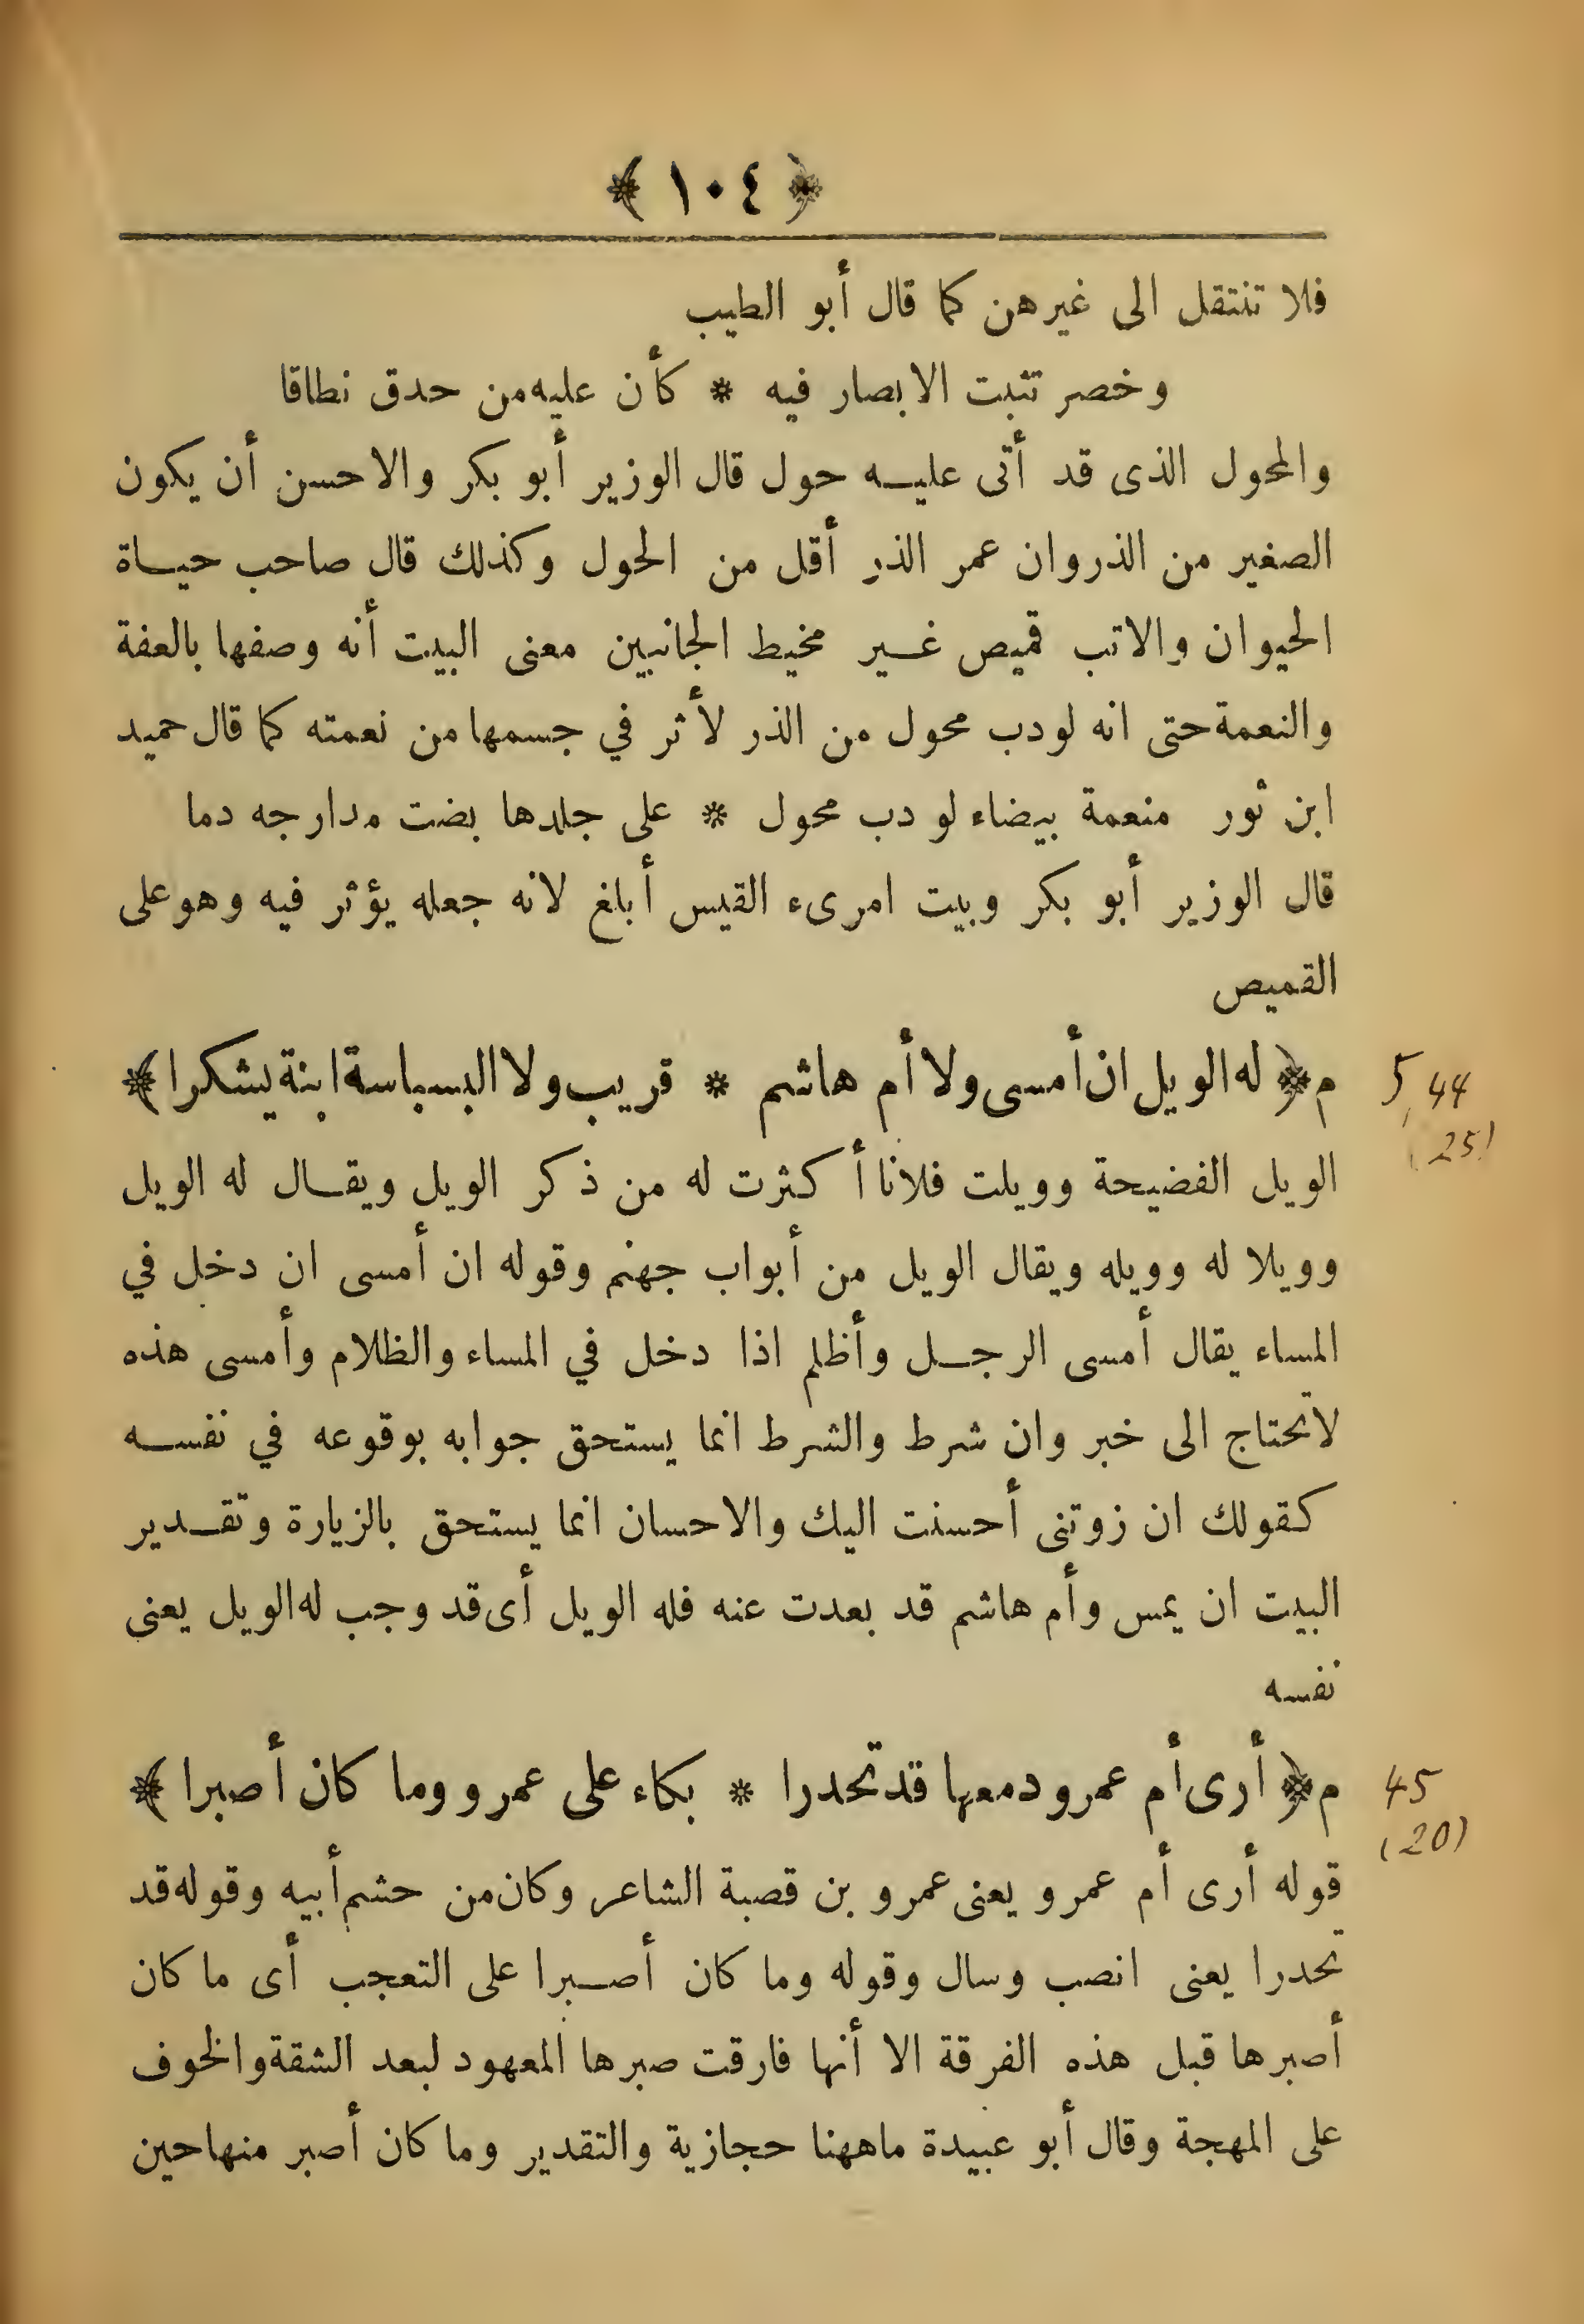 ﴿ ١٠٤ ﴾
فلا تنتقل الى غيرهن كما قال أبو الطيب
وخصر تثبت الابصار فيه * كأن عليه من حدق نطاقا
والمحول الذى قد أتى عليه حول قال الوزير أبو بكر والاحسن أن يكون
الصغير من الذر وان عمر الذر أقل من الحول وكذلك قال صاحب حياة
الحيوان والاتب قميص غير مخيط الجانبين معنى البيت أنه وصفها بالعفة
والنعمة حتى انه لو دب محول من الذر لأثر في جسمها من نعمته كما قال حميد
ابن ثور منعمة بيضاء لو دب محول * على جلدها بضت مدارجه دما
قال الوزير أبو بكر وبيت امرىء القيس أبلغ لانه جعله يؤثر فيه وهو على
القميص
م ﴿ له الويل ان أمسى ولا أم هاشم * قريب ولا البسباسة ابنة يشكرا ﴾
5, 44
(25)
الويل الفضيحة وويلت فلانا أكثرت له من ذكر الويل ويقال له الويل
وويلا له وويله ويقال الويل من أبواب جهنم وقوله ان أمسى ان دخل في
المساء يقال أمسى الرجل وأظلم اذا دخل في المساء والظلام وأمسى هذه
لاتحتاج الى خبر وان شرط والشرط انما يستحق جوابه بوقوعه في نفسه
كقولك ان زوتنى أحسنت اليك والاحسان انما يستحق بالزيارة وتقدير
البيت ان يمس وأم هاشم قد بعدت عنه فله الويل أى قد وجب له الويل يعنى
نفسه
م ﴿ أرى أم عمرو دمعها قد تحدرا * بكاء على عمرو وما كان أصبرا ﴾
45
(20)
قوله أرى أم عمرو يعنى عمرو بن قصبة الشاعر وكان من حشم أبيه وقوله قد
تحدرا يعنى انصب وسال وقوله وما كان أصبرا على التعجب أى ما كان
أصبرها قبل هذه الفرقة الا أنها فارقت صبرها المعهود لبعد الشقة والخوف
على المهجة وقال أبو عبيدة ماههنا حجازية والتقدير وما كان أصبر منها حين